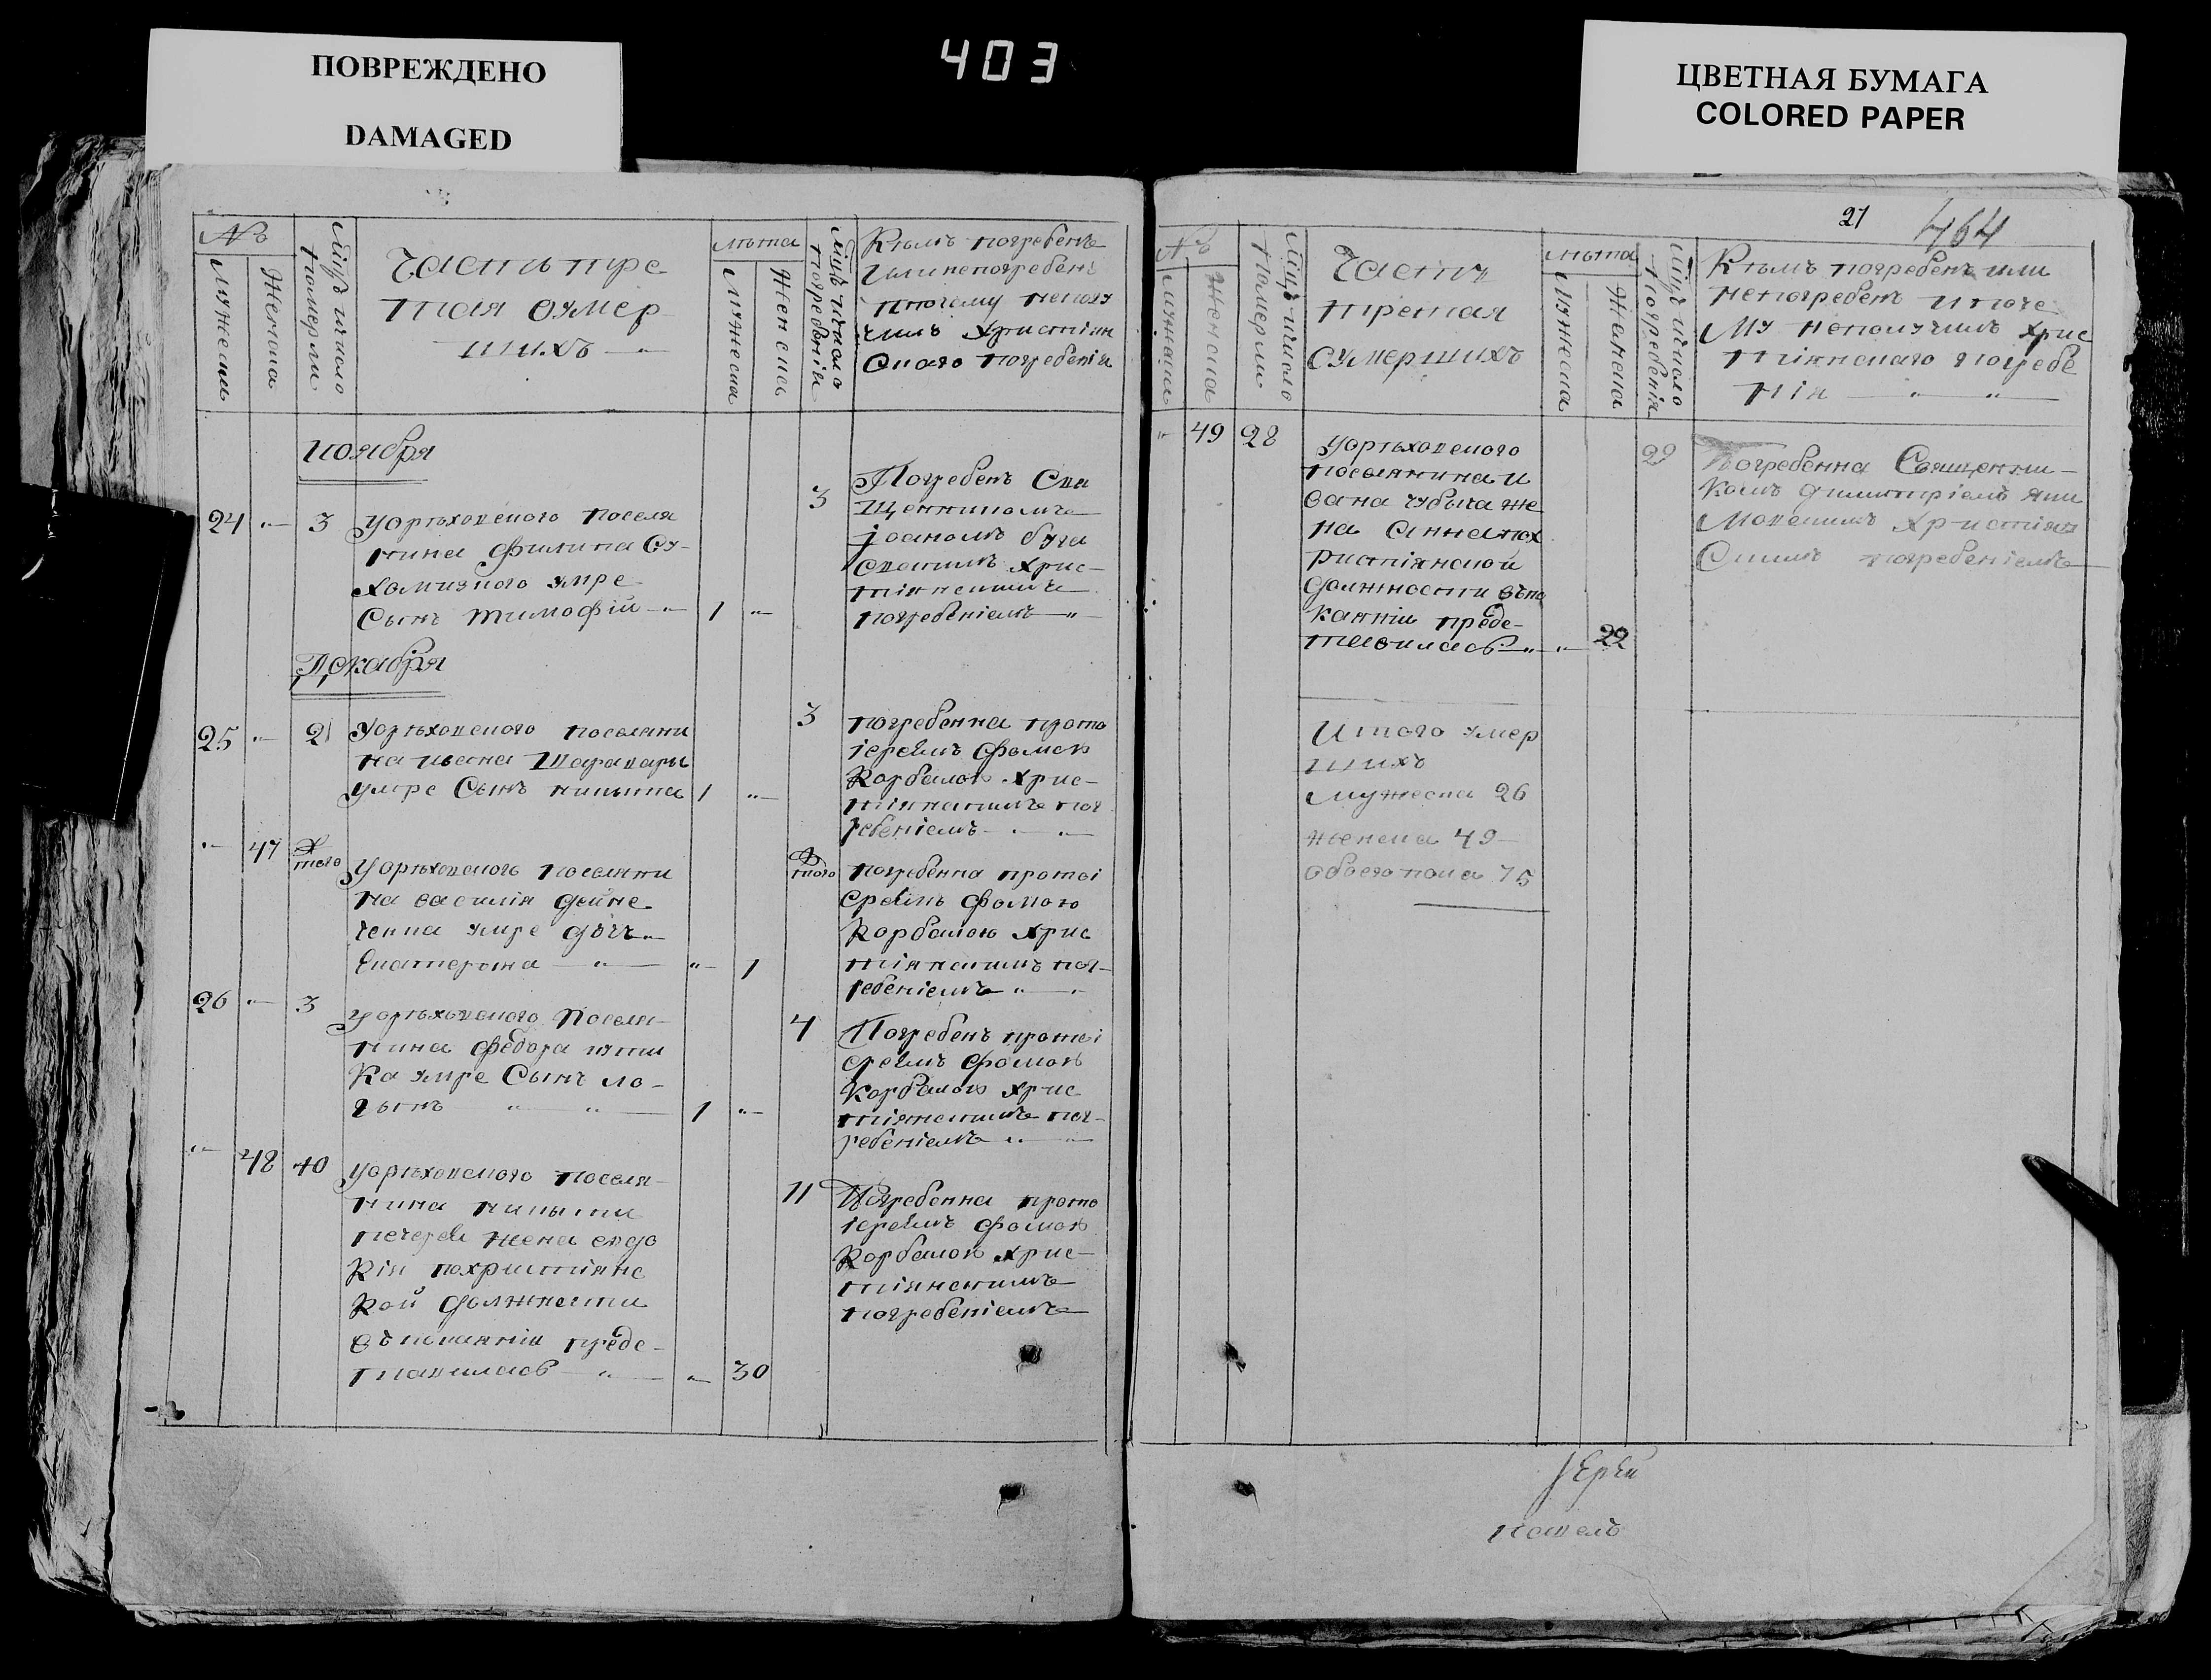 ПОВРЕЖДЕНО
DAMAGED
403
ЦВЕТНАЯ БУМАГА
COLORED PAPER
№
Мужеска
Женска
Мцъ и число
померли
Часть тре
тая ѹмер
шихъ
лѣта
Мужеска
Женска
Мцъ и число
погребѣнія
Кѣмъ погребенъ
или непогребенъ
ипочему неполу
чилъ Христіян
скаго погребенія
ноября
24 3
поселя
нина филипа
умре
Сынъ тимофій 1
3
Погребенъ Свя
щенникомъ
Іоаномъ
Хрис
тіянскимъ
погребеніемъ
Декабря
25 2
поселяни
на
умре Сынъ никита 1
3
погребенна прото
іереемъ фомою
Корбалою Хрис
тіянскимъ пог
ребеніемъ
47 того
поселяни
на василія дейне
ченка умре дочъ
Екатерина 1
того
погребенна протоі
ереемъ фомою
Корбалою Хрис
тіянскимъ пог
ребеніемъ
26 3
поселя
нина федора
ка умре Сынъ ло
гынъ 1
4
Погребенъ протоі
ереемъ фомою
Корбалою Хрис
тіянскимъ пог
ребеніемъ
48 10
поселя
нина никиты
печерей жена евдо
кія похристіянс
кой должности
въ покаянніи предс
тавилась 30
11
Погребенна прото
іереемъ фомою
Корбалою Хрис
тіянскимъ
погребеніемъ
21 464
№
Мужеска
Женска
Мцъ и число
померли
Часть
третая
ѹмершихъ
лѣта
Мужеска
Женска
Мцъ и число
погребенія
Кѣмъ погребенъ или
непогребенъ ипоче
му неполучилъ хрис
тіянскаго погребе
нія
49 28
поселянина и
вана чубука же
на Анна пох
ристіянской
должности въпо
каянніи предс
тавилась 22
29
Погребенна Священни
комъ димитріемъ
Христіян
скимъ погребеніемъ
Итого умер
шихъ
мужеска 26
женска 49
обоего пола 75
Іерей
павелъ